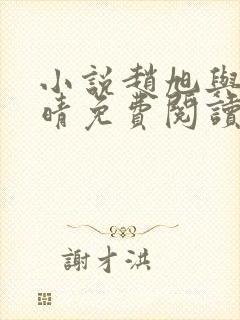 小說趙旭與
晴免費閱讀
謝才洪